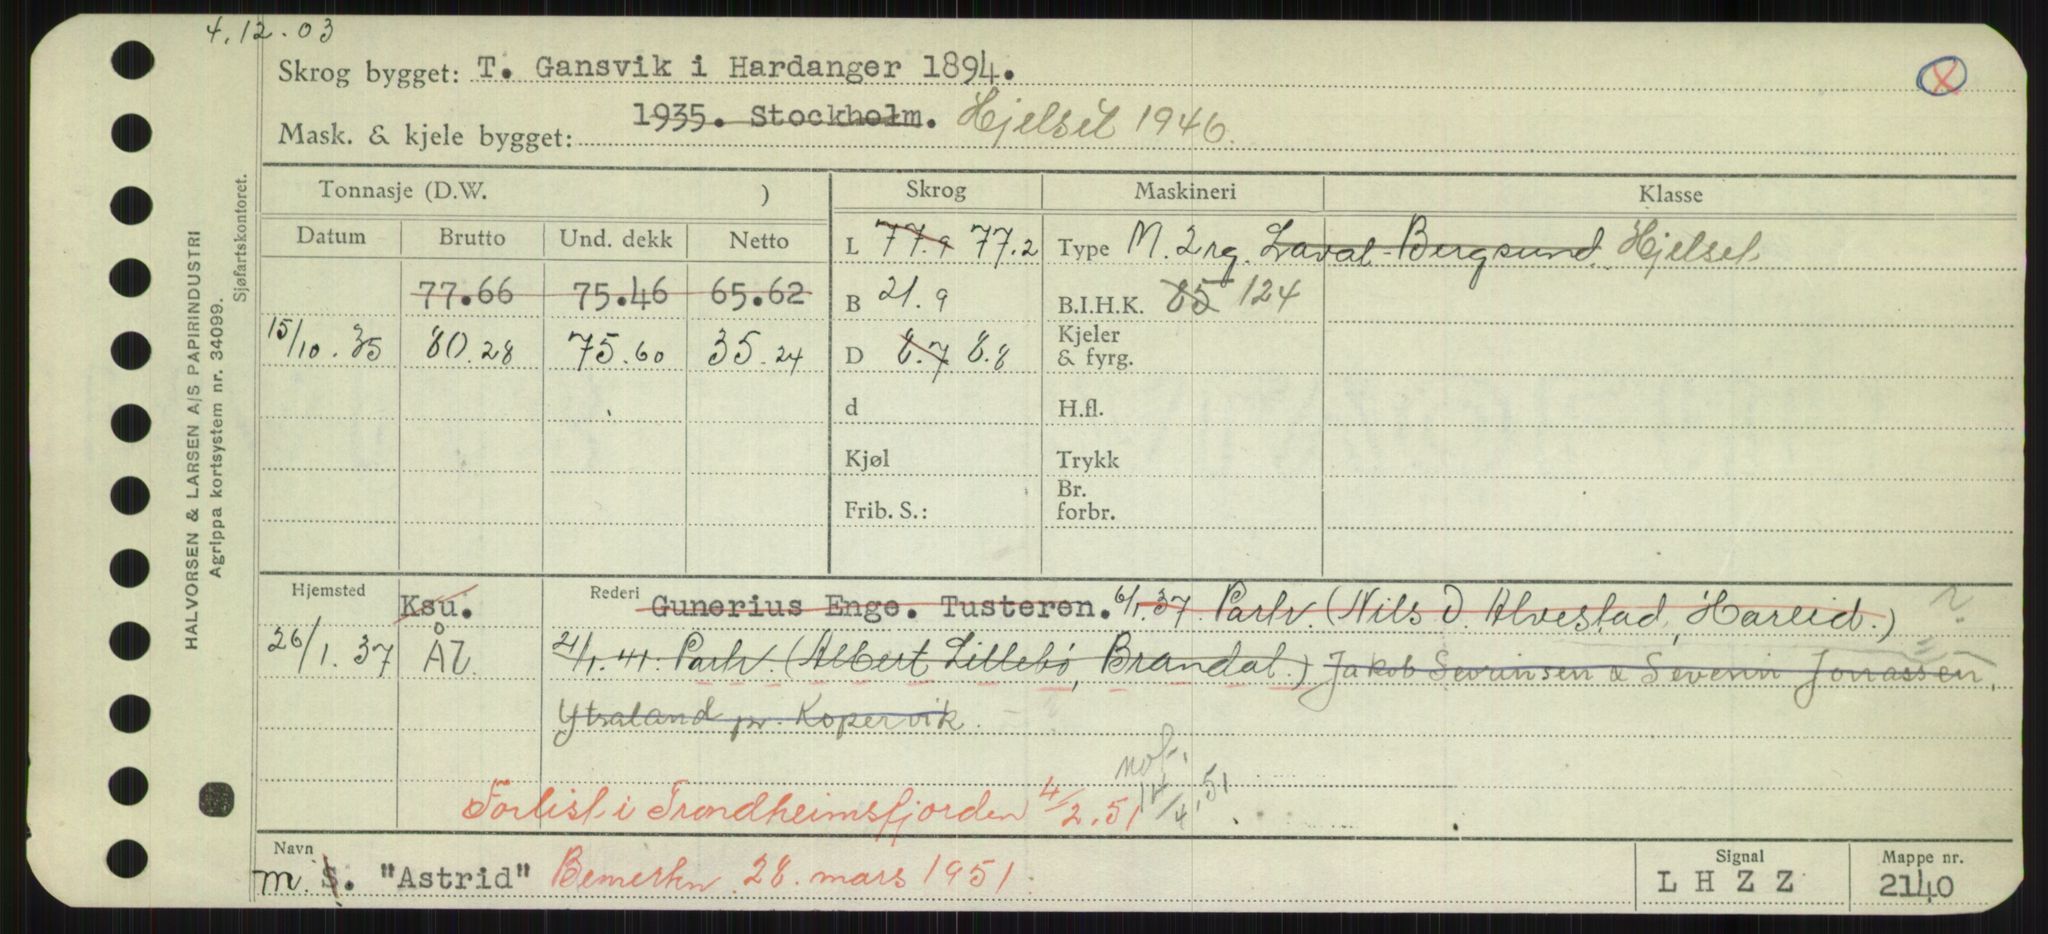 4.12.03
Skrog bygget: T. Gansvik i Hardanger 1894.
1935. Stockholm. Hjelset 1946.
Mask. & kjele bygget:
Tonnasje (D.W. ) Skrog Maskineri Klasse
Datum Brutto Und. dekk Netto L 77.9 77.2 Type M. 2rg. Laval-Bergsund. Hjelset
77.66 75.46 65.62 B 21.9 B.I.H.K. 85 124
15/10.35 80.28 75.60 35.24 D 8.7 8.8 Kjeler & fyrg.
d H.fl.
Kjøl Trykk
Frib. S.: Br. forbr.
Hjemsted Ksu. Rederi Gunerius Enge. Tusteren. 6/1.37 Partr. (Nils O. Alvestad, Hareid.) ?
26/1.37 Ål. 21/1.41. Partr. (Albert Lillebø, Brandal.) Jakob Severinsen & Severin Jonassen,
Ytraland pr. Kopervik.
Forlist i Trondheimsfjorden 4/2.51 not. 14/4.51
Navn m. S. "Astrid" Bemerkn. 28. mars 1951.
Signal L H Z Z
Mappe nr. 2140
HALVORSEN & LARSEN A/S PAPIRINDUSTRI
Agrippa kortsystem nr. 34099.
Sjøfartskontoret.